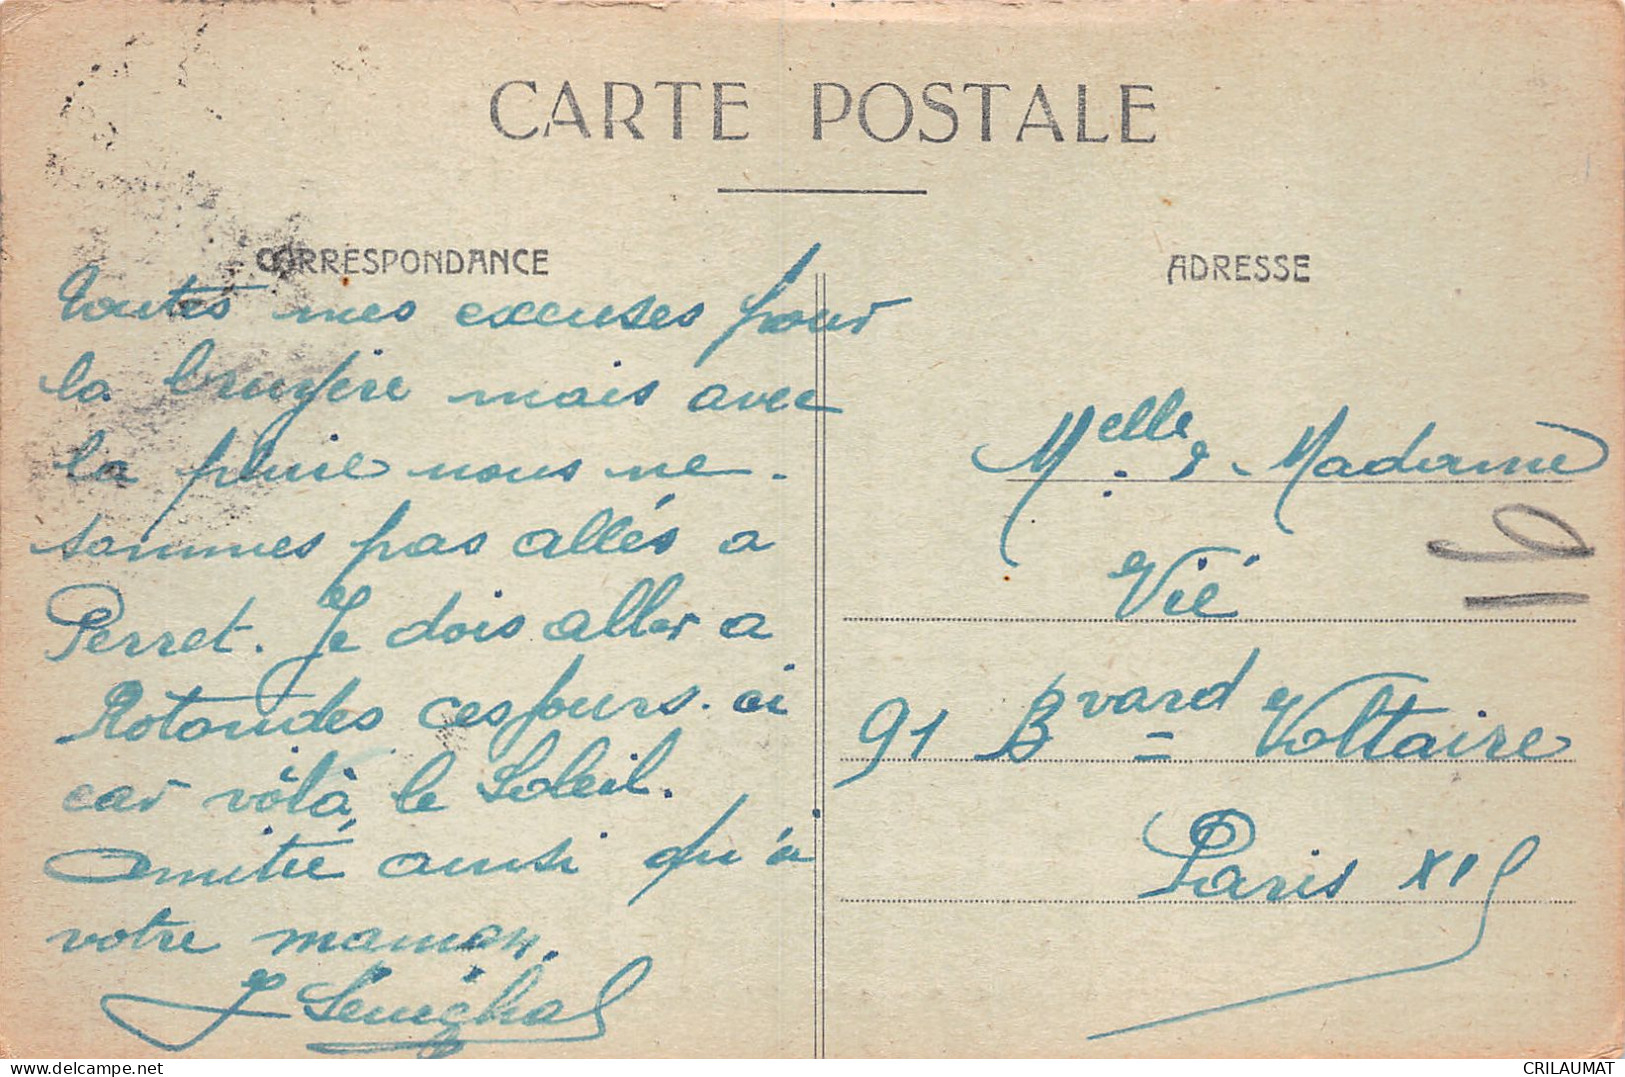 CARTE POSTALE
CORRESPONDANCE
toutes mes excuses pour
la bruyère mais avec
la pluie nous ne
sommes pas allés a
Perret. Je dois aller a
Rotoudes ces jours. ci
car voilà le Soleil.
Amitié ainsi qu'à
votre maman.
J Senechal
ADRESSE
Melle & Madame
Vié
91 Bvard = Voltaire
Paris XI
16
CRILAUMAT